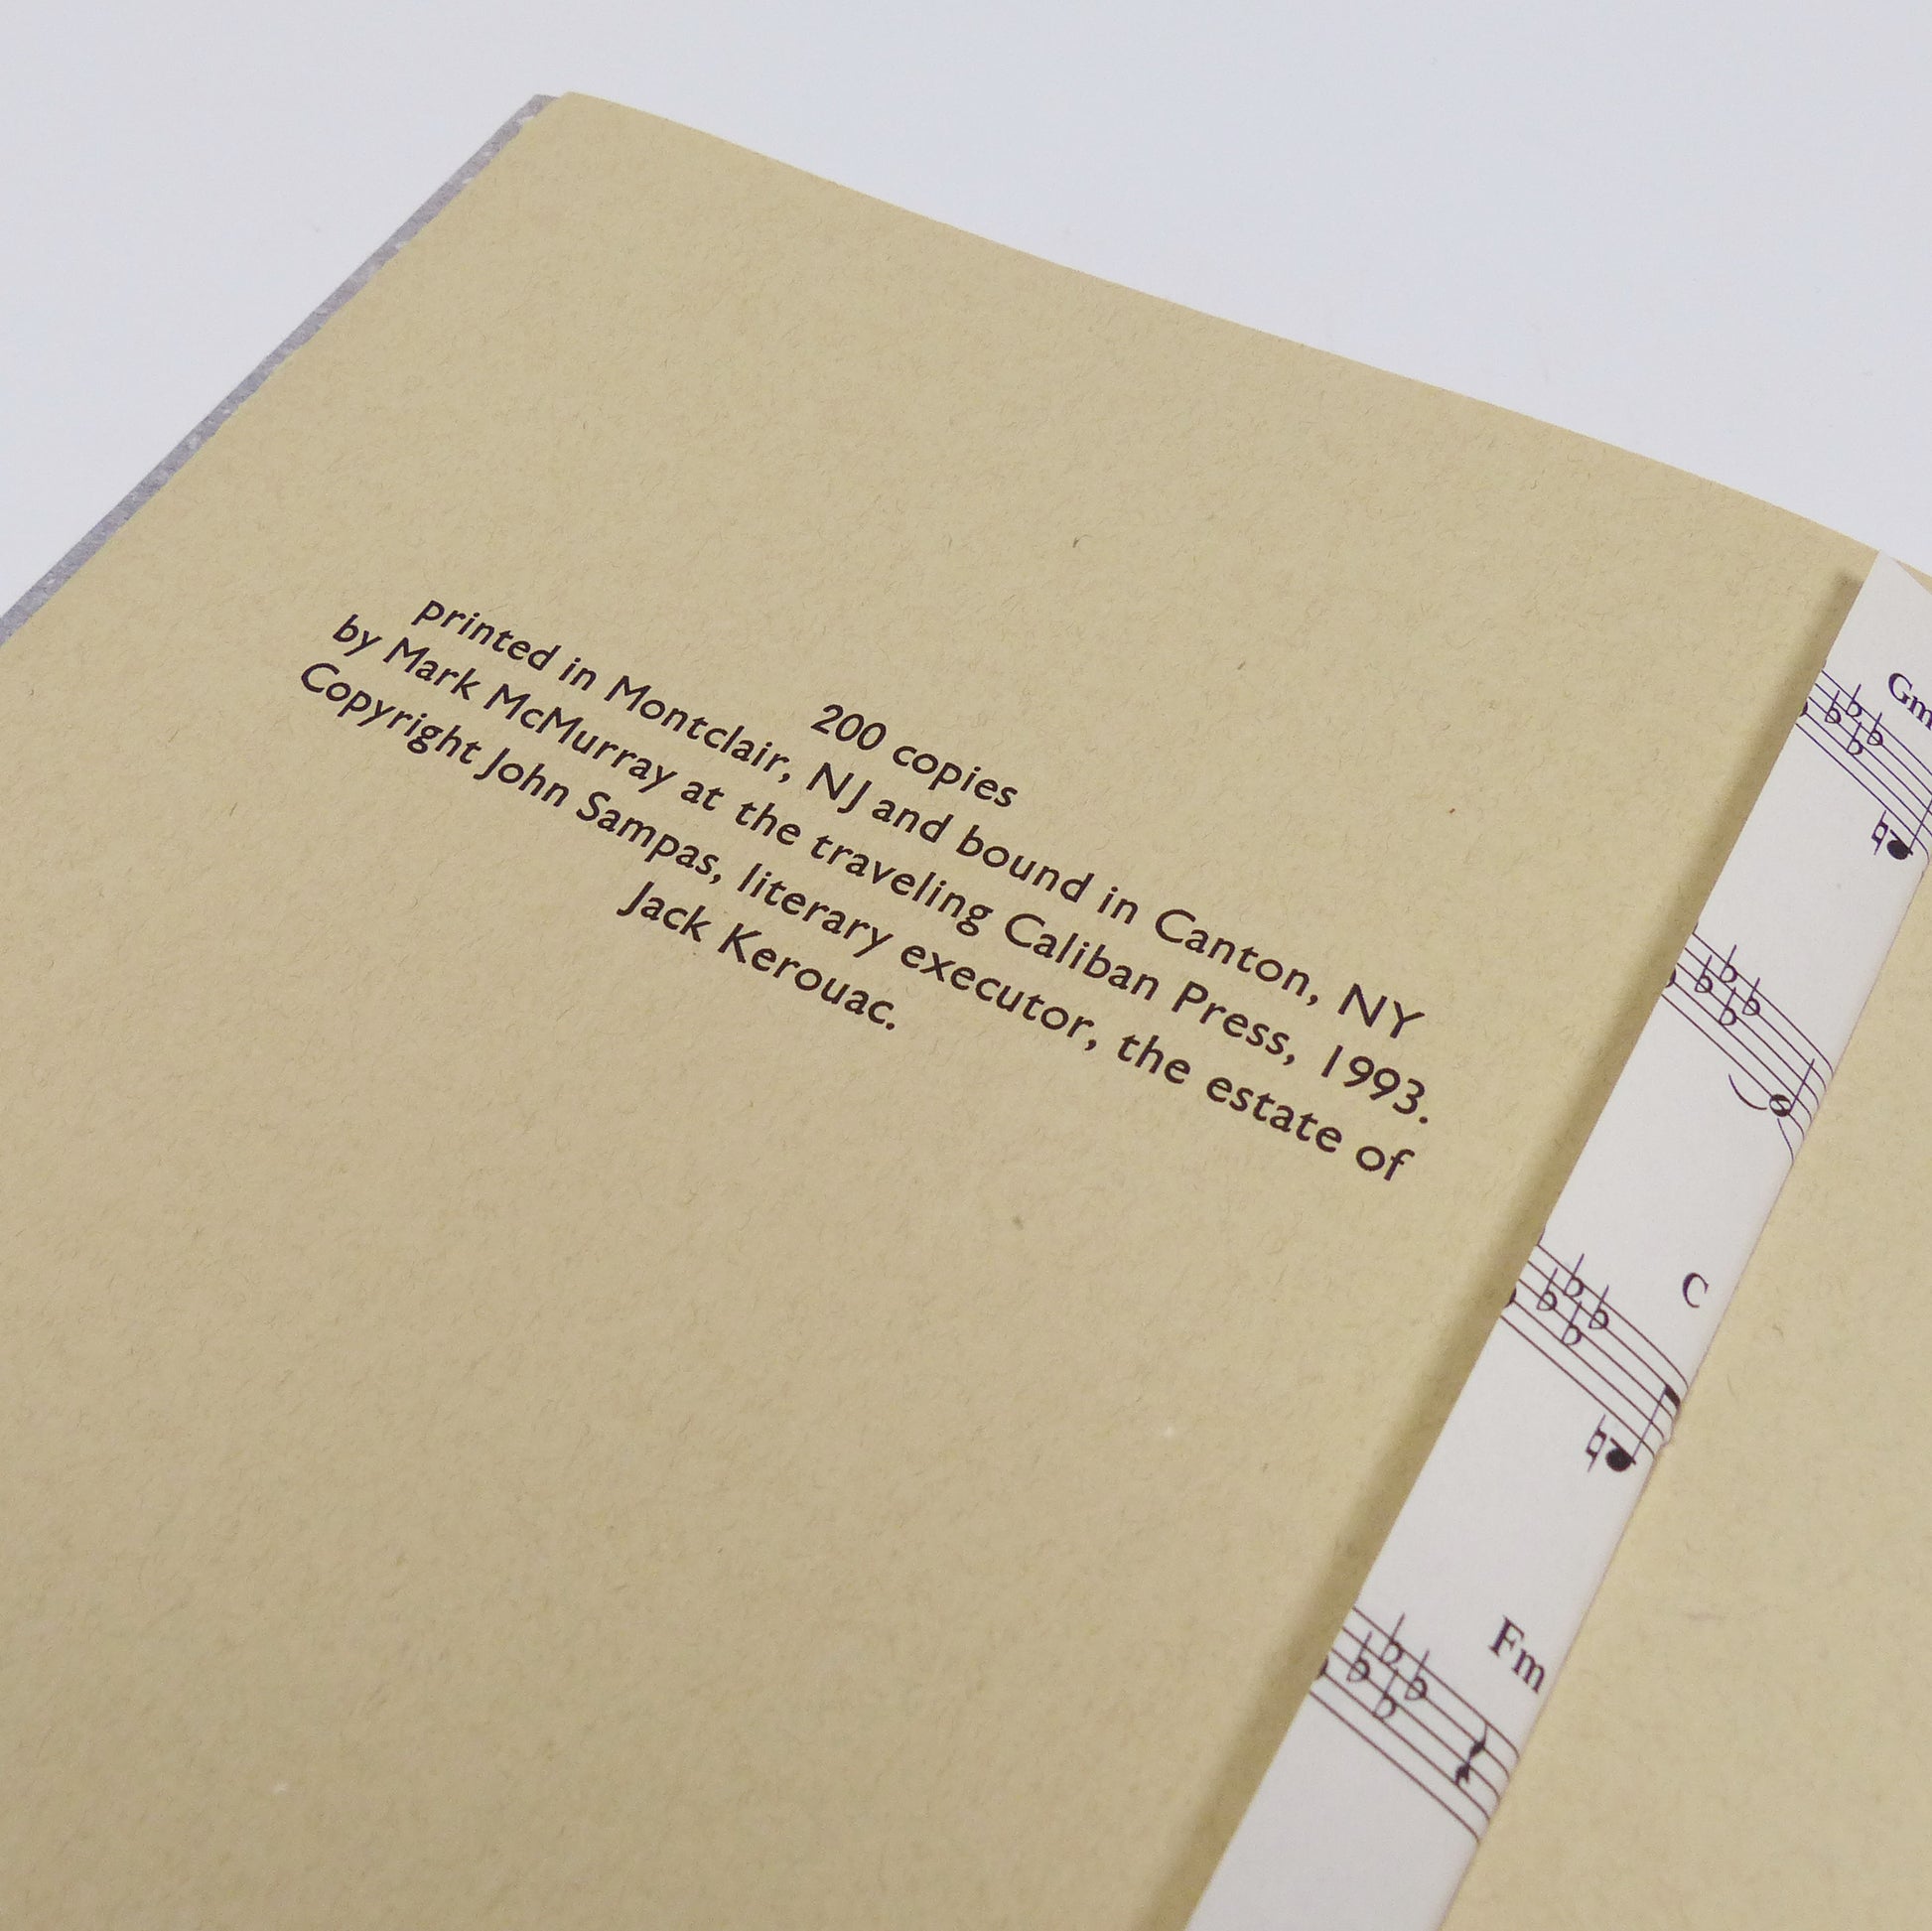 200 copies
printed in Montclair, NJ and bound in Canton, NY
by Mark McMurray at the traveling Caliban Press, 1993.
Copyright John Sampas, literary executor, the estate of
Jack Kerouac.
Gm
C
Fm